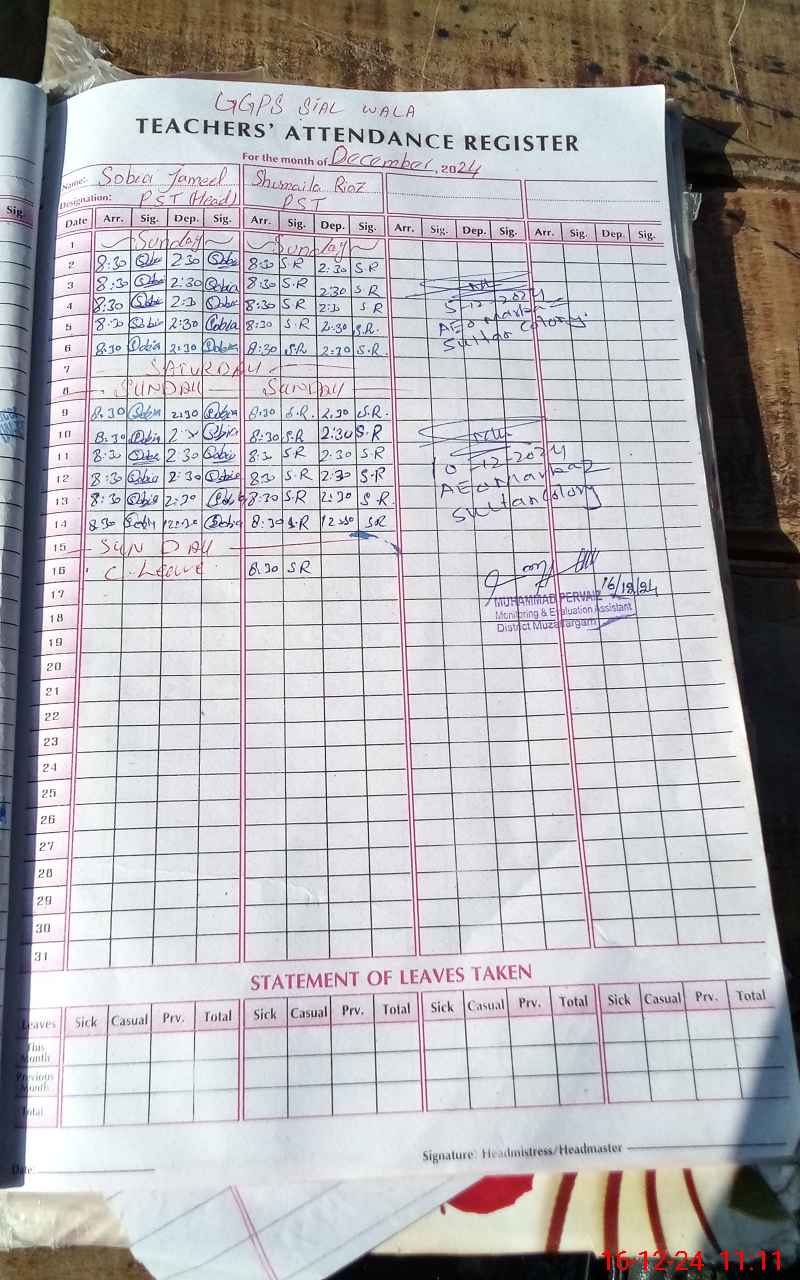 GGPS SIAL WALA
TEACHERS' ATTENDANCE REGISTER
For the month of December, 2024
Name: Sobia Jameel Shumaila Riaz
Designation: PST (Head) PST
Sig.
Date Arr. Sig. Dep. Sig. Arr. Sig. Dep. Sig. Arr. Sig. Dep. Sig. Arr. Sig. Dep. Sig.
1 Sunday Sunday
2 8:30 Sobia 2:30 Sobia 8:30 S.R 2:30 S.R
3 8:30 Sobia 2:30 Sobia 8:30 S.R 2:30 S.R
4 8:30 Sobia 2:30 Sobia 8:30 S.R 2:30 S.R
5-12-2024
5 8:30 Sobia 2:30 Sobia 8:30 S.R 2:30 S.R.
AEO Markaz
6 8:30 Sobia 2:30 Sobia 8:30 S.R 2:30 S.R
Sultan Colony
7 SATURDAY
8 SUNDAY SUNDAY
9 8.30 Sobia 2:30 Sobia 8.30 S.R. 2.30 S.R.
10 8:30 Sobia 2 Sobia 8:30 S.R 2:30 S.R
11 8:30 Sobia 2:30 Sobia 8:30 S.R 2:30 S.R
10-12-2024
12 8:30 Sobia 2:30 Sobia 8:30 S.R 2:30 S.R
AEO Markaz
13 8:30 Sobia 2:30 Sobia 8:30 S.R 2:30 S.R
Sultan Colony
14 8:30 Sobia 12:30 Sobia 8:30 S.R 12:30 S.R
15 SUNDAY
16 C. Leave 8.30 S.R
16/12/24
17
MUHAMMAD PERVAIZ
Monitoring & Evaluation Assistant
18
District Muzaffargarh
19
20
21
22
23
24
25
26
27
28
29
30
31
STATEMENT OF LEAVES TAKEN
Leaves Sick Casual Prv. Total Sick Casual Prv. Total Sick Casual Prv. Total Sick Casual Prv. Total
This Month
Previous Month
Total
Signature: Headmistress/Headmaster
Date:
16-12-24 11:11